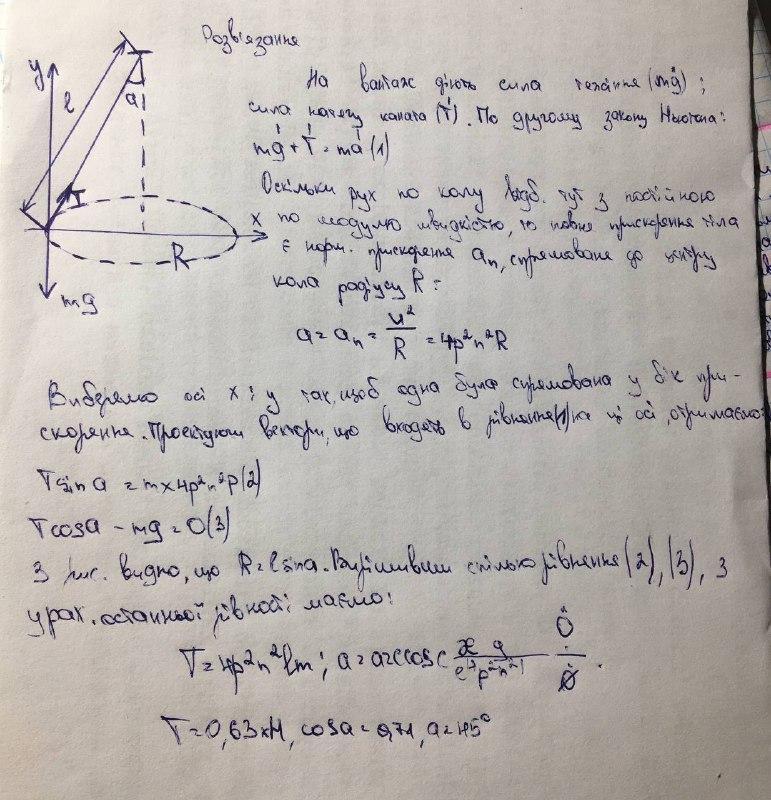 Розв'язання
y
a
l
T
x
R
mg
На вантаж діють сила тяжіння (mg);
сила натягу каната (T). По другому закону Ньютона:
mg + T = ma (1)
Оскільки рух по колу відб. тут з постійною
по модулю швидкістю, то повне прискорення тіла
є норм. прискорення an, спрямоване до центру
кола радіусу R:
a = an = u²/R = 4p²n²R
Виберемо осі x і y так, щоб одна була спрямована у бік при-
скорення. Проектуючи вектори, що входять в рівняння (1) на ці осі, отримаємо:
T sin a = m x 4p²n²P (2)
T cos a - mg = 0 (3)
З рис. видно, що R = l sin a. Вирішивши спільно рівняння (2), (3), з
урах. останньої рівності маємо:
T = 4p²n²lm; a = arccos
T = 0,63 x H, cos a = 0,71, a = 45°